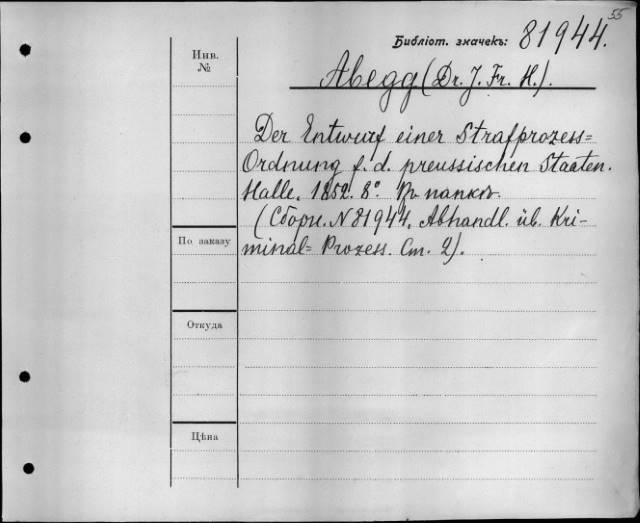 55
Библіот. значекъ: 81944.
Инв.
№
Abegg (Dr. J. Fr. H.).
Der Entwurf einer Strafprozess=
Ordnung f. d. preussischen Staaten.
Halle. 1852. 8º. Въ папкѣ.
(Сборн. N 81944. Abhandl. üb. Kri-
minal= Prozess. Ст. 2).
По заказу
Откуда
Цѣна